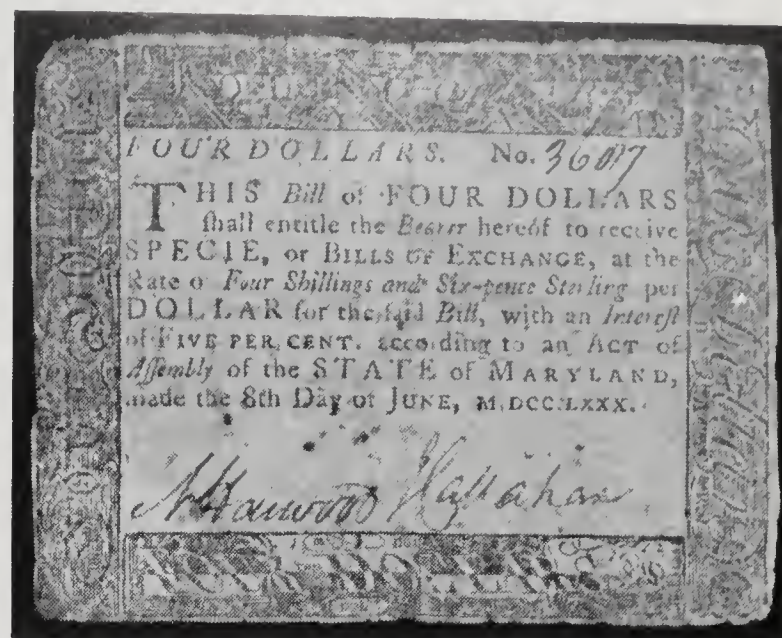 FOUR DOLLARS. No. 3607
THIS Bill of FOUR DOLLARS
ſhall entitle the Bearer hereof to receive
SPECIE, or BILLS OF EXCHANGE, at the
Rate of Four Shillings and Six-pence Sterling per
DOLLAR for the ſaid Bill, with an Intereſt
of FIVE PER CENT. according to an ACT of
Aſſembly of the STATE of MARYLAND,
made the 8th Day of JUNE, M,DCC,LXXX.
N Harwood J Callahan